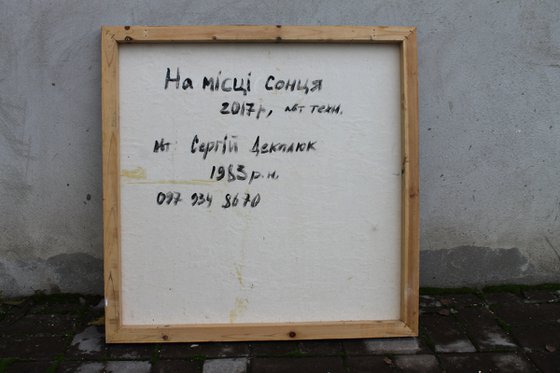 На місці сонця
2017р, авт техн.
Сергій Декалюк
1983 р.н.
097 934 8670